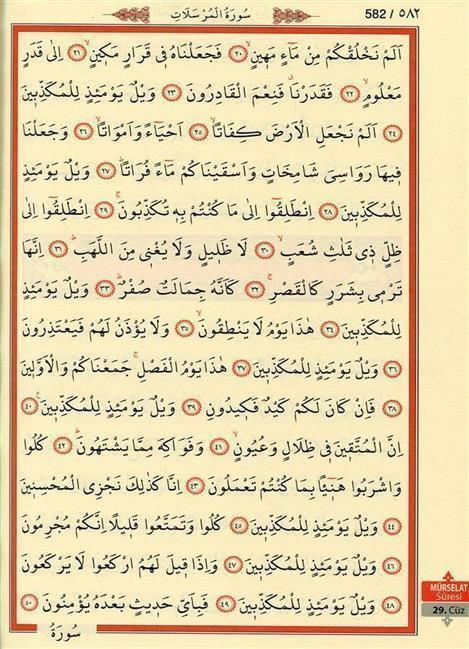 سُورَةُ الْمُرْسَلَاتِ
582 / ٥٨٢
اَلَمْ نَخْلُقْكُمْ مِنْ مَٓاءٍ مَه۪ينٍۙ ﴿٢٠﴾ فَجَعَلْنَاهُ ف۪ي قَرَارٍ مَك۪ينٍۙ ﴿٢١﴾ اِلٰى قَدَرٍ
مَعْلُومٍۙ ﴿٢٢﴾ فَقَدَرْنَاۗ فَنِعْمَ الْقَادِرُونَ ﴿٢٣﴾ وَيْلٌ يَوْمَئِذٍ لِلْمُكَذِّب۪ينَ
﴿٢٤﴾ اَلَمْ نَجْعَلِ الْاَرْضَ كِفَاتًاۙ ﴿٢٥﴾ اَحْيَٓاءً وَاَمْوَاتًاۙ ﴿٢٦﴾ وَجَعَلْنَا
ف۪يهَا رَوَاسِيَ شَامِخَاتٍ وَاَسْقَيْنَاكُمْ مَٓاءً فُرَاتًاۜ ﴿٢٧﴾ وَيْلٌ يَوْمَئِذٍ
لِلْمُكَذِّب۪ينَ ﴿٢٨﴾ اِنْطَلِقُٓوا اِلٰى مَا كُنْتُمْ بِه۪ تُكَذِّبُونَۚ ﴿٢٩﴾ اِنْطَلِقُٓوا اِلٰى
ظِلٍّ ذ۪ي ثَلٰثِ شُعَبٍۙ ﴿٣٠﴾ لَا ظَل۪يلٍ وَلَا يُغْن۪ي مِنَ اللَّهَبِۜ ﴿٣١﴾ اِنَّهَا
تَرْم۪ي بِشَرَرٍ كَالْقَصْرِۚ ﴿٣٢﴾ كَاَنَّهُ جِمَالَتٌ صُفْرٌۜ ﴿٣٣﴾ وَيْلٌ يَوْمَئِذٍ
لِلْمُكَذِّب۪ينَ ﴿٣٤﴾ هٰذَا يَوْمُ لَا يَنْطِقُونَۙ ﴿٣٥﴾ وَلَا يُؤْذَنُ لَهُمْ فَيَعْتَذِرُونَ
﴿٣٦﴾ وَيْلٌ يَوْمَئِذٍ لِلْمُكَذِّب۪ينَ ﴿٣٧﴾ هٰذَا يَوْمُ الْفَصْلِۚ جَمَعْنَاكُمْ وَالْاَوَّل۪ينَ
﴿٣٨﴾ فَاِنْ كَانَ لَكُمْ كَيْدٌ فَك۪يدُونِ ﴿٣٩﴾ وَيْلٌ يَوْمَئِذٍ لِلْمُكَذِّب۪ينَ۟ ﴿٤٠﴾
اِنَّ الْمُتَّق۪ينَ ف۪ي ظِلَالٍ وَعُيُونٍۙ ﴿٤١﴾ وَفَوَاكِهَ مِمَّا يَشْتَهُونَۜ ﴿٤٢﴾ كُلُوا
وَاشْرَبُوا هَن۪ٓيـًٔا بِمَا كُنْتُمْ تَعْمَلُونَ ﴿٤٣﴾ اِنَّا كَذٰلِكَ نَجْزِي الْمُحْسِن۪ينَ
﴿٤٤﴾ وَيْلٌ يَوْمَئِذٍ لِلْمُكَذِّب۪ينَ ﴿٤٥﴾ كُلُوا وَتَمَتَّعُوا قَل۪يلًا اِنَّكُمْ مُجْرِمُونَ
﴿٤٦﴾ وَيْلٌ يَوْمَئِذٍ لِلْمُكَذِّب۪ينَ ﴿٤٧﴾ وَاِذَا ق۪يلَ لَهُمُ ارْكَعُوا لَا يَرْكَعُونَ
﴿٤٨﴾ وَيْلٌ يَوْمَئِذٍ لِلْمُكَذِّب۪ينَ ﴿٤٩﴾ فَبِاَيِّ حَد۪يثٍ بَعْدَهُ يُؤْمِنُونَ ﴿٥٠﴾
سُورَةُ
MÜRSELAT
Sûresi
29. Cüz